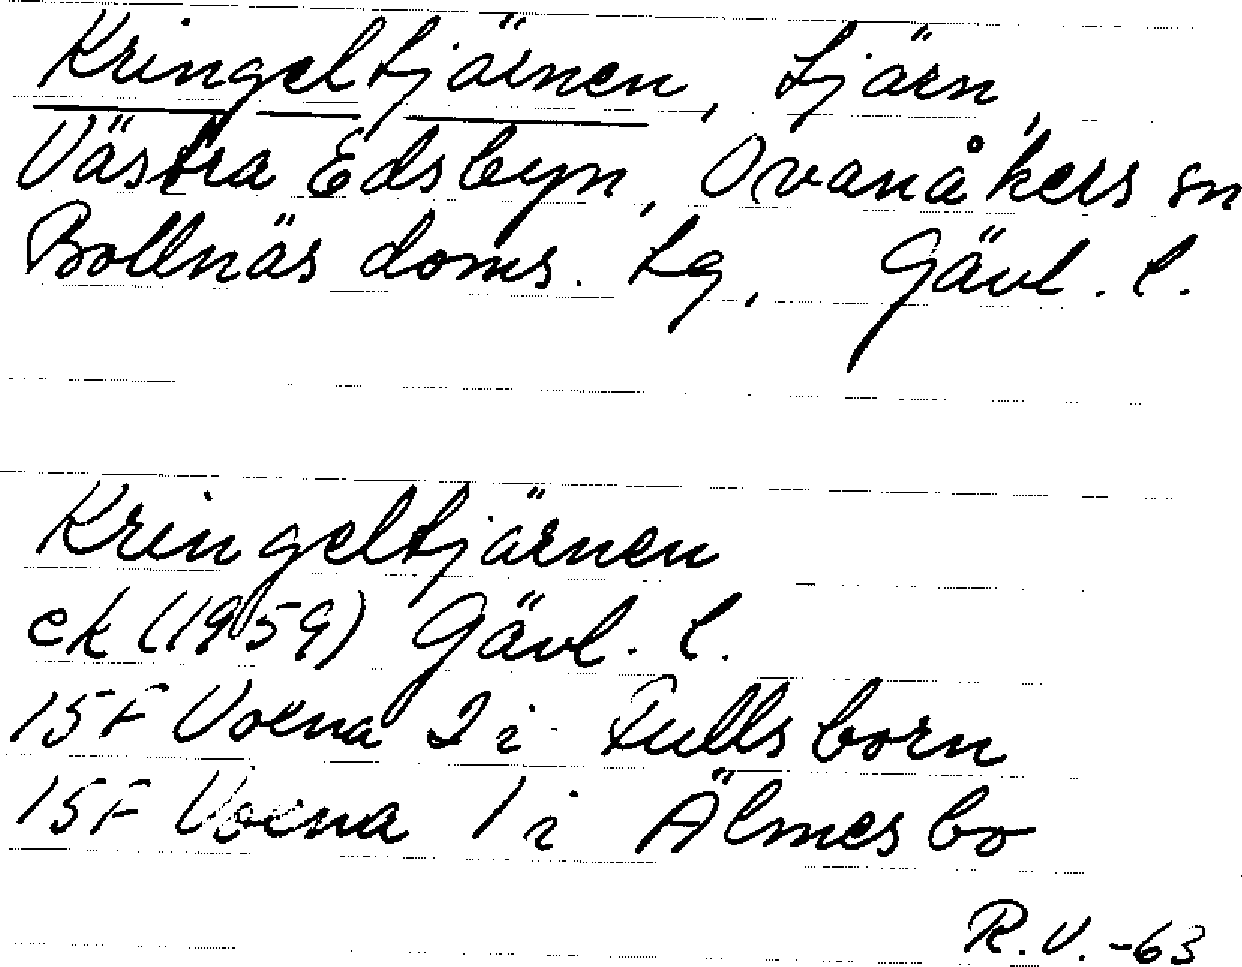 Kringeltjärnen, tjärn,
Västra Edsbyn, Ovanåkers sn
Bollnäs doms. tg, Gävl. l.
Kringeltjärnen
ek (1959) Gävl. l.
15F Voxna 2 i Fullsborn
15F Voxna 1 i Älmesbo
R.V.-63